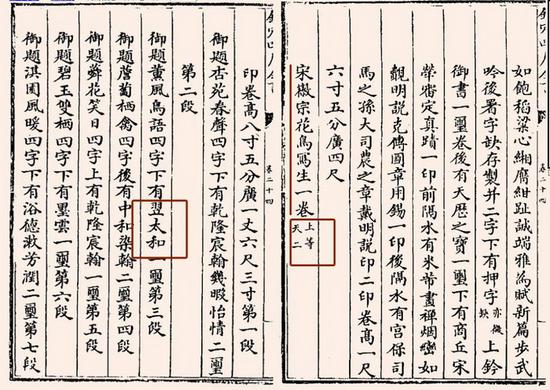 如飽稻粱心緗腐紺趾誠端雅為賦新篇步武
吟後署字缺存製并二字下有押字亦殘缺上鈐
御書一璽卷後有天歷之寶一璽下有商丘宋
犖審定真蹟一印前隔水有米芾畫禪烟巒如
覿明說克傳圖章用錫一印後隔水有宮保司
馬之孫大司農之章戴明說印二印卷高一尺
六寸五分廣四尺
宋徽宗花鳥寫生一卷上等天二
卷二十四
印卷高八寸五分廣一丈六尺三寸第一段
御題杏苑春聲四字下有乾隆宸翰幾暇怡情二璽
第二段
御題薰風鳥語四字下有翌太和一璽第三段
御題薝蔔栖禽四字後有中和染翰二璽第四段
御題花笑日四字上有乾隆宸翰一璽第五段
御題碧玉雙栖四字下有墨雲一璽第六段
御題淇園風暖四字下有浴德漱芳潤二璽第七段
卷二十四